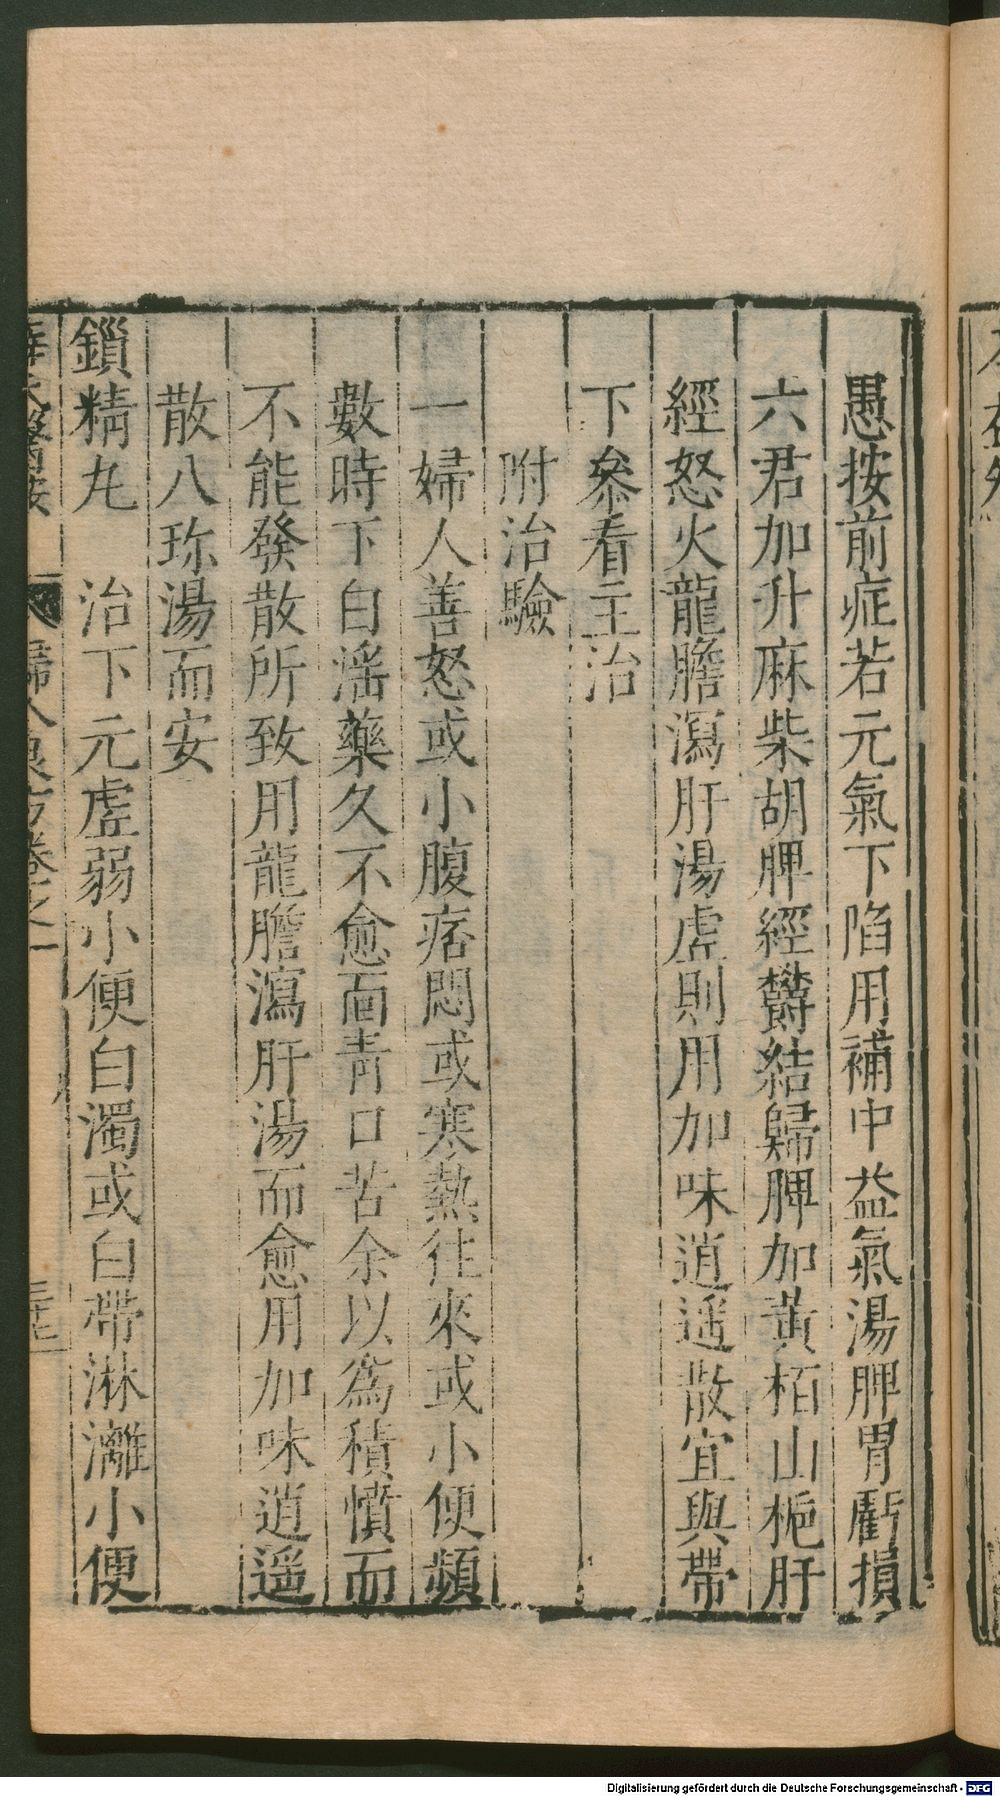 愚按前症若元氣下陷用補中益氣湯脾胃虧損
六君加升麻柴胡脾經鬱結歸脾加黃栢山梔肝
經怒火龍膽瀉肝湯虛則用加味逍遥散宜與帶
下叅看主治
附治驗
一婦人善怒或小腹痞悶或寒熱往來或小便頻
數時下白滛藥久不愈面青口苦余以爲積憤而
不能發散所致用龍膽瀉肝湯而愈用加味逍遥
散八珎湯而安
鎻精丸 治下元虛弱小便白濁或白帶淋漓小便
薛氏醫按 婦人良方卷之一
Digitalisierung gefördert durch die Deutsche Forschungsgemeinschaft - DFG